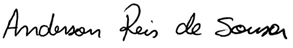 Anderson Reis de Sousa